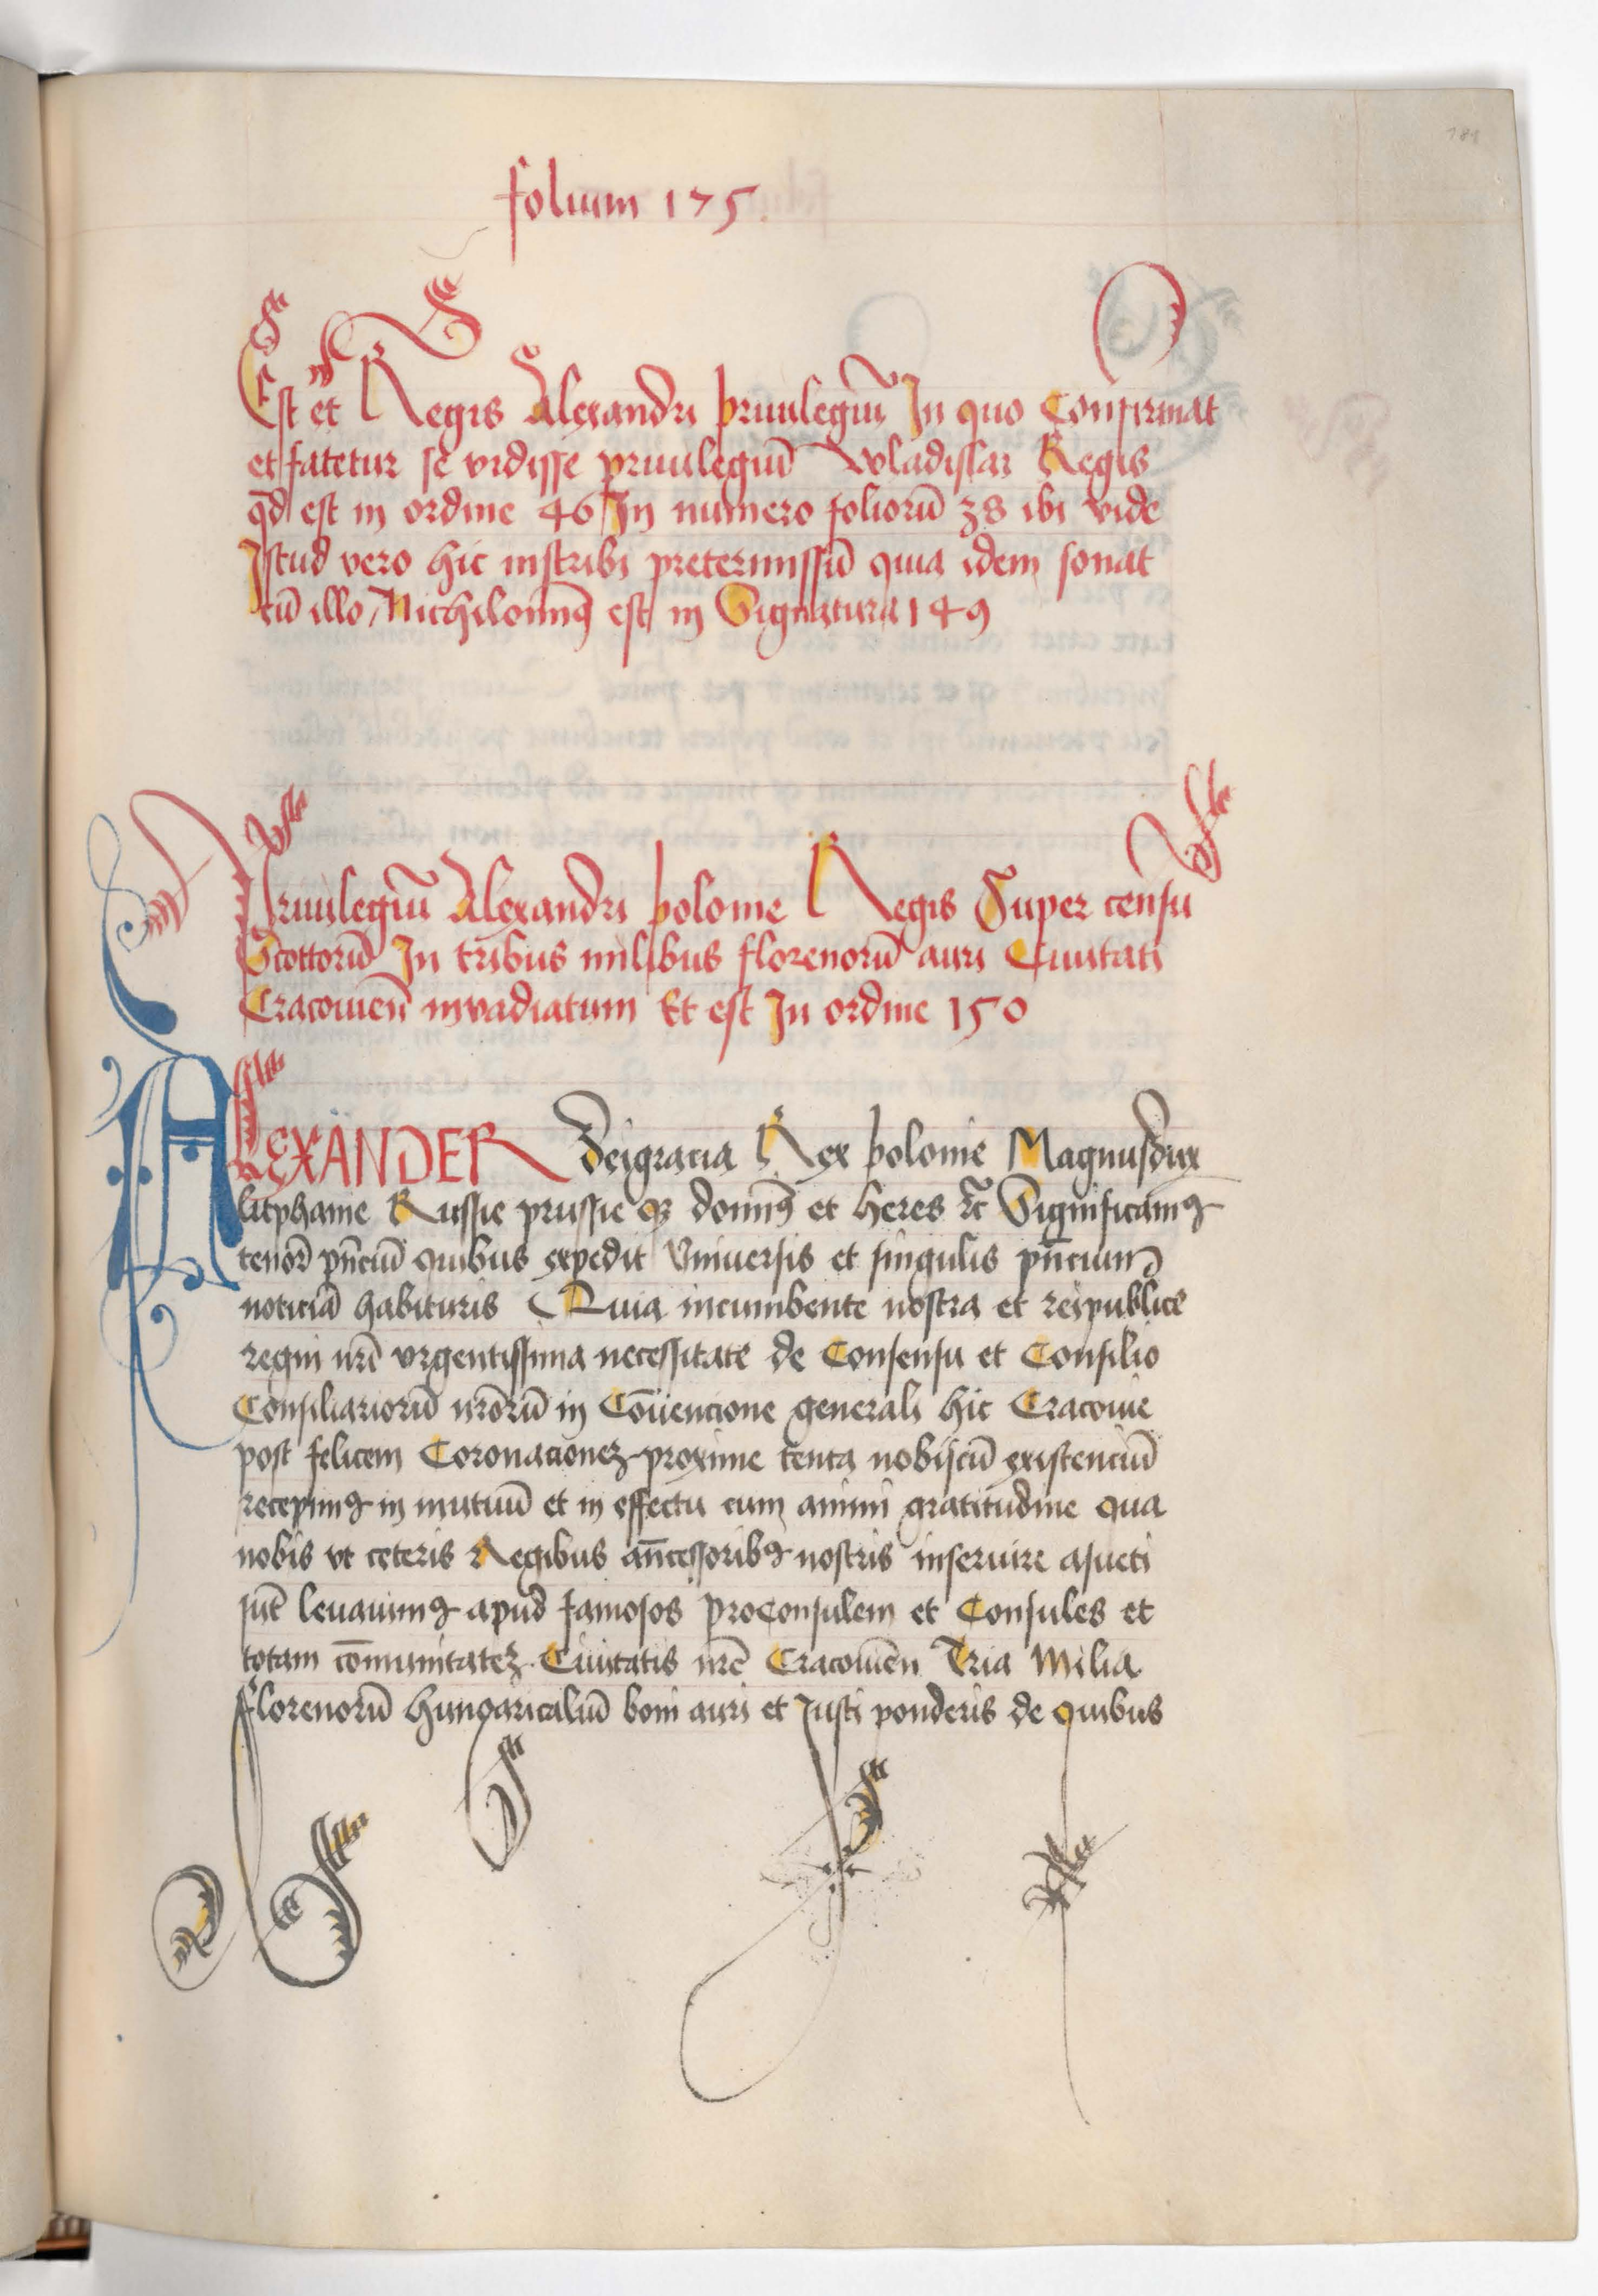 181
folium 175.
Est et Regis Alexandri priuilegiū In quo Confirmat
et fatetur se vidisse priuilegiū Wladislai Regis
qd̄ est in ordine 46 In numero foliorū 38 ibi vide
Istud vero hic inscribi pretermissū quia idem sonat
cū illo Nichilominꝰ est in Signatura 149
Priuilegiū Alexandri polonie Regis Super censu
Scottorū In tribus milibus florenorū auri Ciuitati
Cracouien̄ invadiatum Et est In ordine 150
ALEXANDER Deigracia Rex polonie Magnusdux
litphanie Russie prussie qꝫ dominꝰ et heres ⁊c̄ Significamꝰ
tenorē pn̄ciū quibus expedit Vniuersis et singulis pn̄cium
noticiā habituris Quia incumbente nostra et reipublice
regni nr̄i vrgentissima necessitate de Consensu et Consilio
Consiliariorū nr̄orū in Cōuencione generali hic Cracouie
post felicem Coronacioneꝫ proxime tenta nobiscū existenciū
recepimꝰ in mutuū et in effectu cum animi gratitudine qua
nobis vt ceteris Regibus an̄cessoribꝰ nostris inseruire asueti
sūt leuauimꝰ apud famosos proconsulem et Consules et
totam cōmunitateꝫ Ciuitatis nr̄e Cracouien̄ Tria Milia
florenorū hungaricaliū boni auri et Justi ponderis de quibus